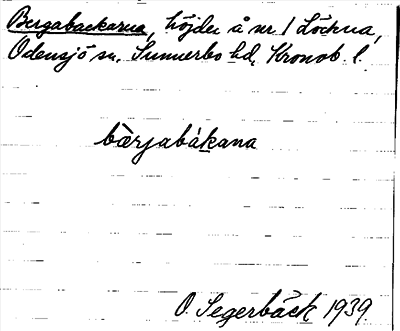 Bergabackarna, höjder å nr 1 Löckna,
Odensjö sn, Sunnerbo hd, Kronob. l.
bærjabákana
O. Segerbäck 1939.